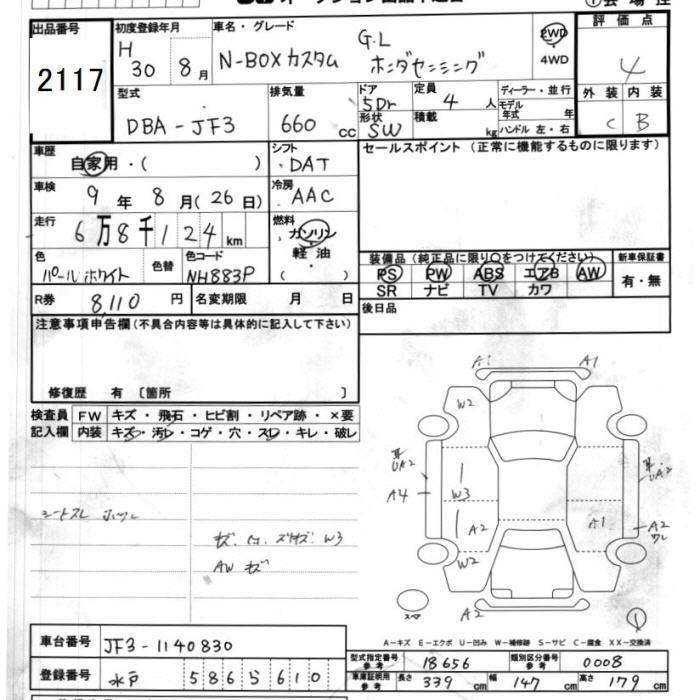 出品番号
2117
初度登録年月
H 30 8月
車名・グレード
N-BOXカスタム G.L ホンダセンシング
2WD
4WD
評価点
4
外装 内装
C B
型式
DBA-JF3
排気量
660 cc
ドア
5Dr
形状
SW
定員
4 人
積載
kg
ディーラー・並行
モデル年式 年
ハンドル 左・右
車歴
自家用・( )
シフト
DAT
セールスポイント (正常に機能するものに限ります)
車検
9年 8月(26日)
冷房
AAC
走行
6万8千124 km
燃料
ガソリン
軽油
( )
色
パールホワイト
色替
色コード
NH883P
装備品 (純正品に限り○をつけてください)
PS PW ABS エアB AW
SR ナビ TV カワ
新車保証書
有・無
R券 8,110 円
名変期限 月 日
後日品
注意事項申告欄 (不具合内容等は具体的に記入して下さい)
修復歴 有 〔箇所 〕
検査員記入欄
FW キズ・飛石・ヒビ割・リペア跡・×要
内装 キズ・汚レ・コゲ・穴・スレ・キレ・破レ
シートスレ
W3
AW キズ
A1 A1
W2
UA2
A4
W3
A2
W2
A2
UA2
A1
A2
スペア
1
A-キズ E-エクボ U-凹み W-補修跡 S-サビ C-腐食 XX-交換済
車台番号 JF3-1140830
登録番号 水戸 586 ら 610
型式指定番号 参考 18656
類別区分番号 参考 0008
車庫証明用 参考 長さ 339 cm 幅 147 cm 高さ 179 cm